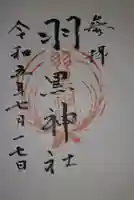 奉拝
羽黒神社
令和五年七月一七日